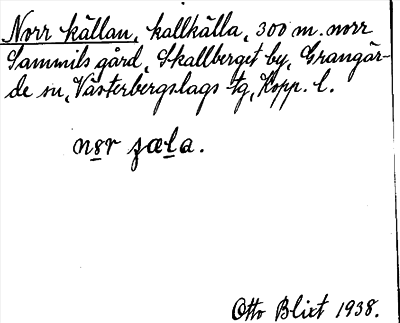 Norr källan, kallkälla, 300 m. norr
Sammils gård, Skallberget by, Grangär-
de sn, Västerbergslags tg, Kopp. l.
nɘr
Otto Blixt 1938.